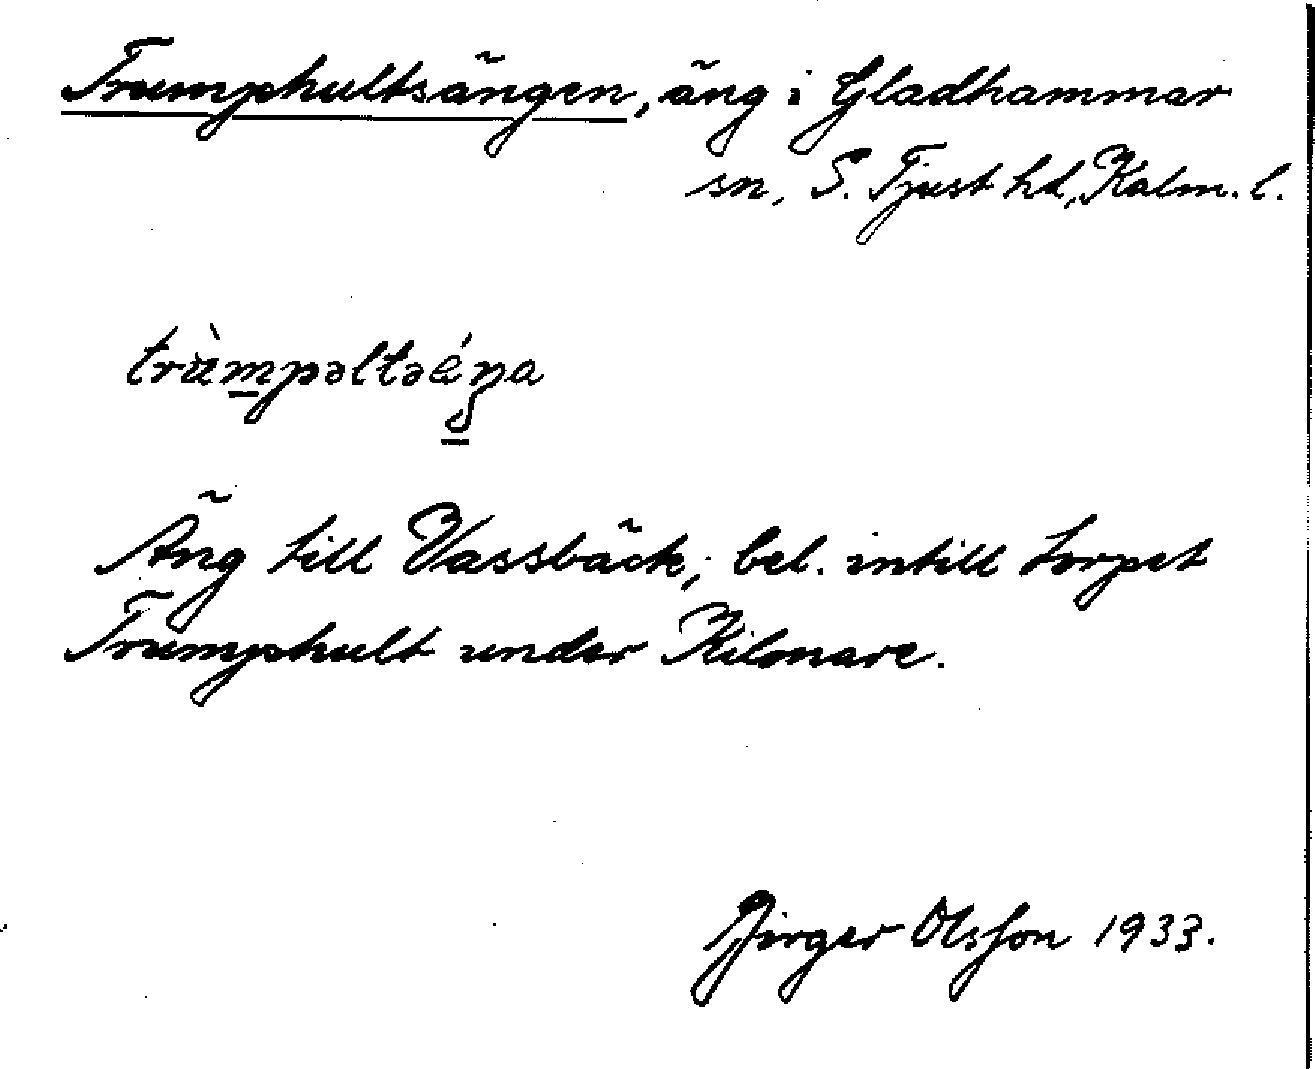 Trumphultsängen, äng i Gladhammar
sn, S. Tjust hd, Kalm. l.
trùmpəltəéŋa
Äng till Vassbäck, bel. intill torpet
Trumphult under Kilsmare.
Birger Olsson 1933.